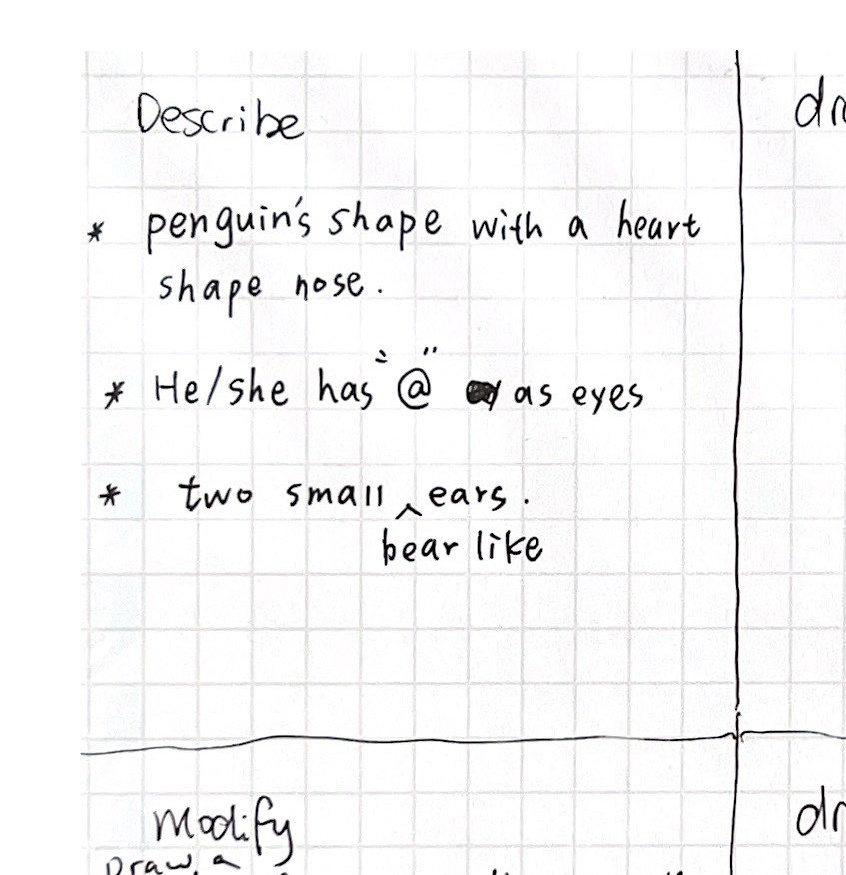 Describe
dr
* penguin's shape with a heart
shape nose.
* He/she has "@" as eyes
* two small ^ ears.
bear like
Modify
dr
Draw a